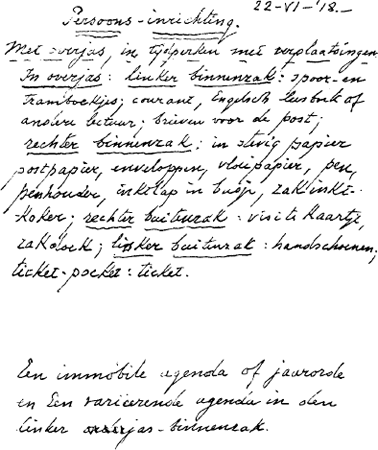 22-VI-'18.-
Persoons-inrichting.
Met overjas, in tijdperken met verplaatsingen
In overjas: linker binnenzak: spoor- en
tramboekjes; courant, Engelsch leesboek of
andere lectuur; brieven voor de post;
rechter binnenzak: in stevig papier
postpapier, enveloppen, vloeipapier, pen,
penhouder, inktlap in busje, zakinkt-
koker; rechter buitenzak: visitekaartje,
zakdoek; linker buitenzak: handschoenen;
ticket-pocket: ticket.
Een immobile agenda of jaarorde
en Een varieerende agenda in den
linker overjas-binnenzak.